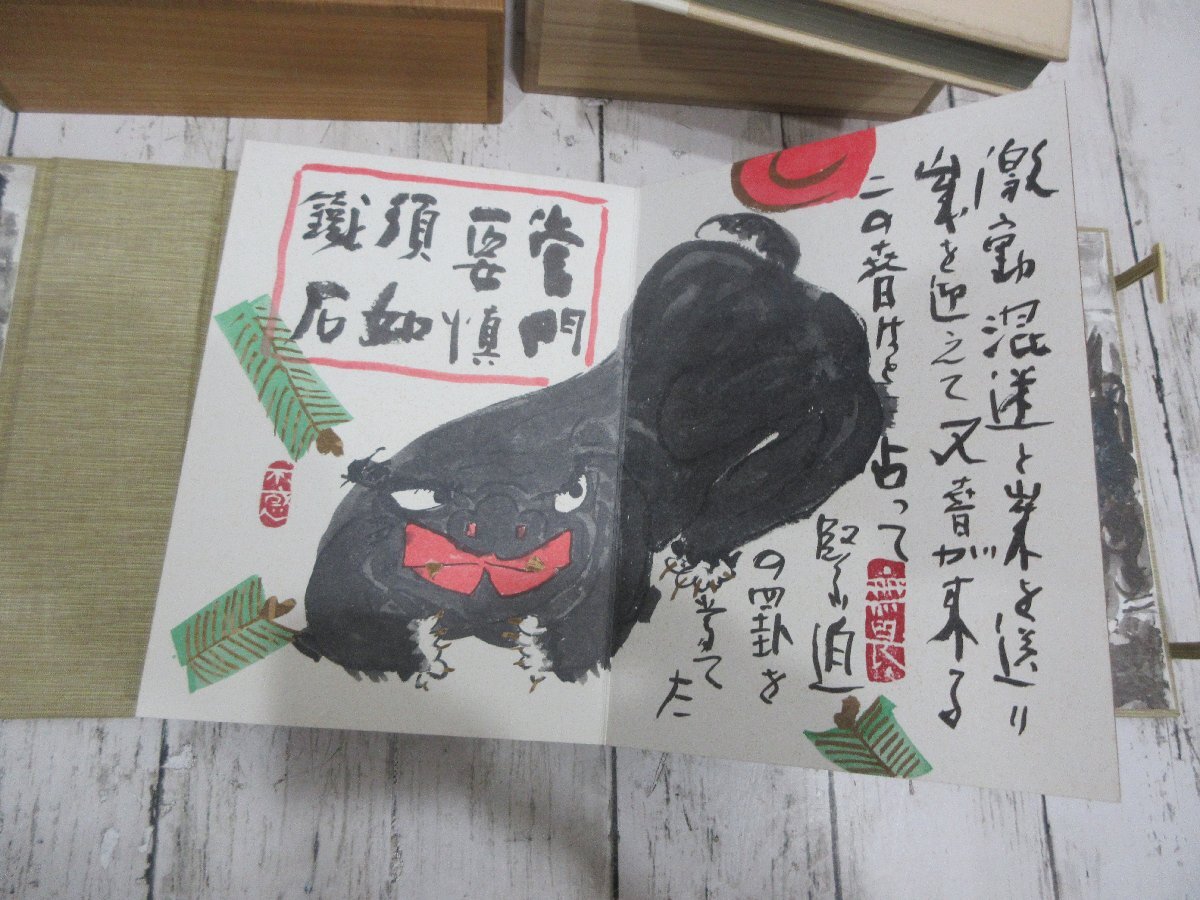 激動混迷と歳を送り
歳を迎えて又春が来る
この春日はと占って
の四卦を
当てた
門
要慎
須如
鐵石
不惑